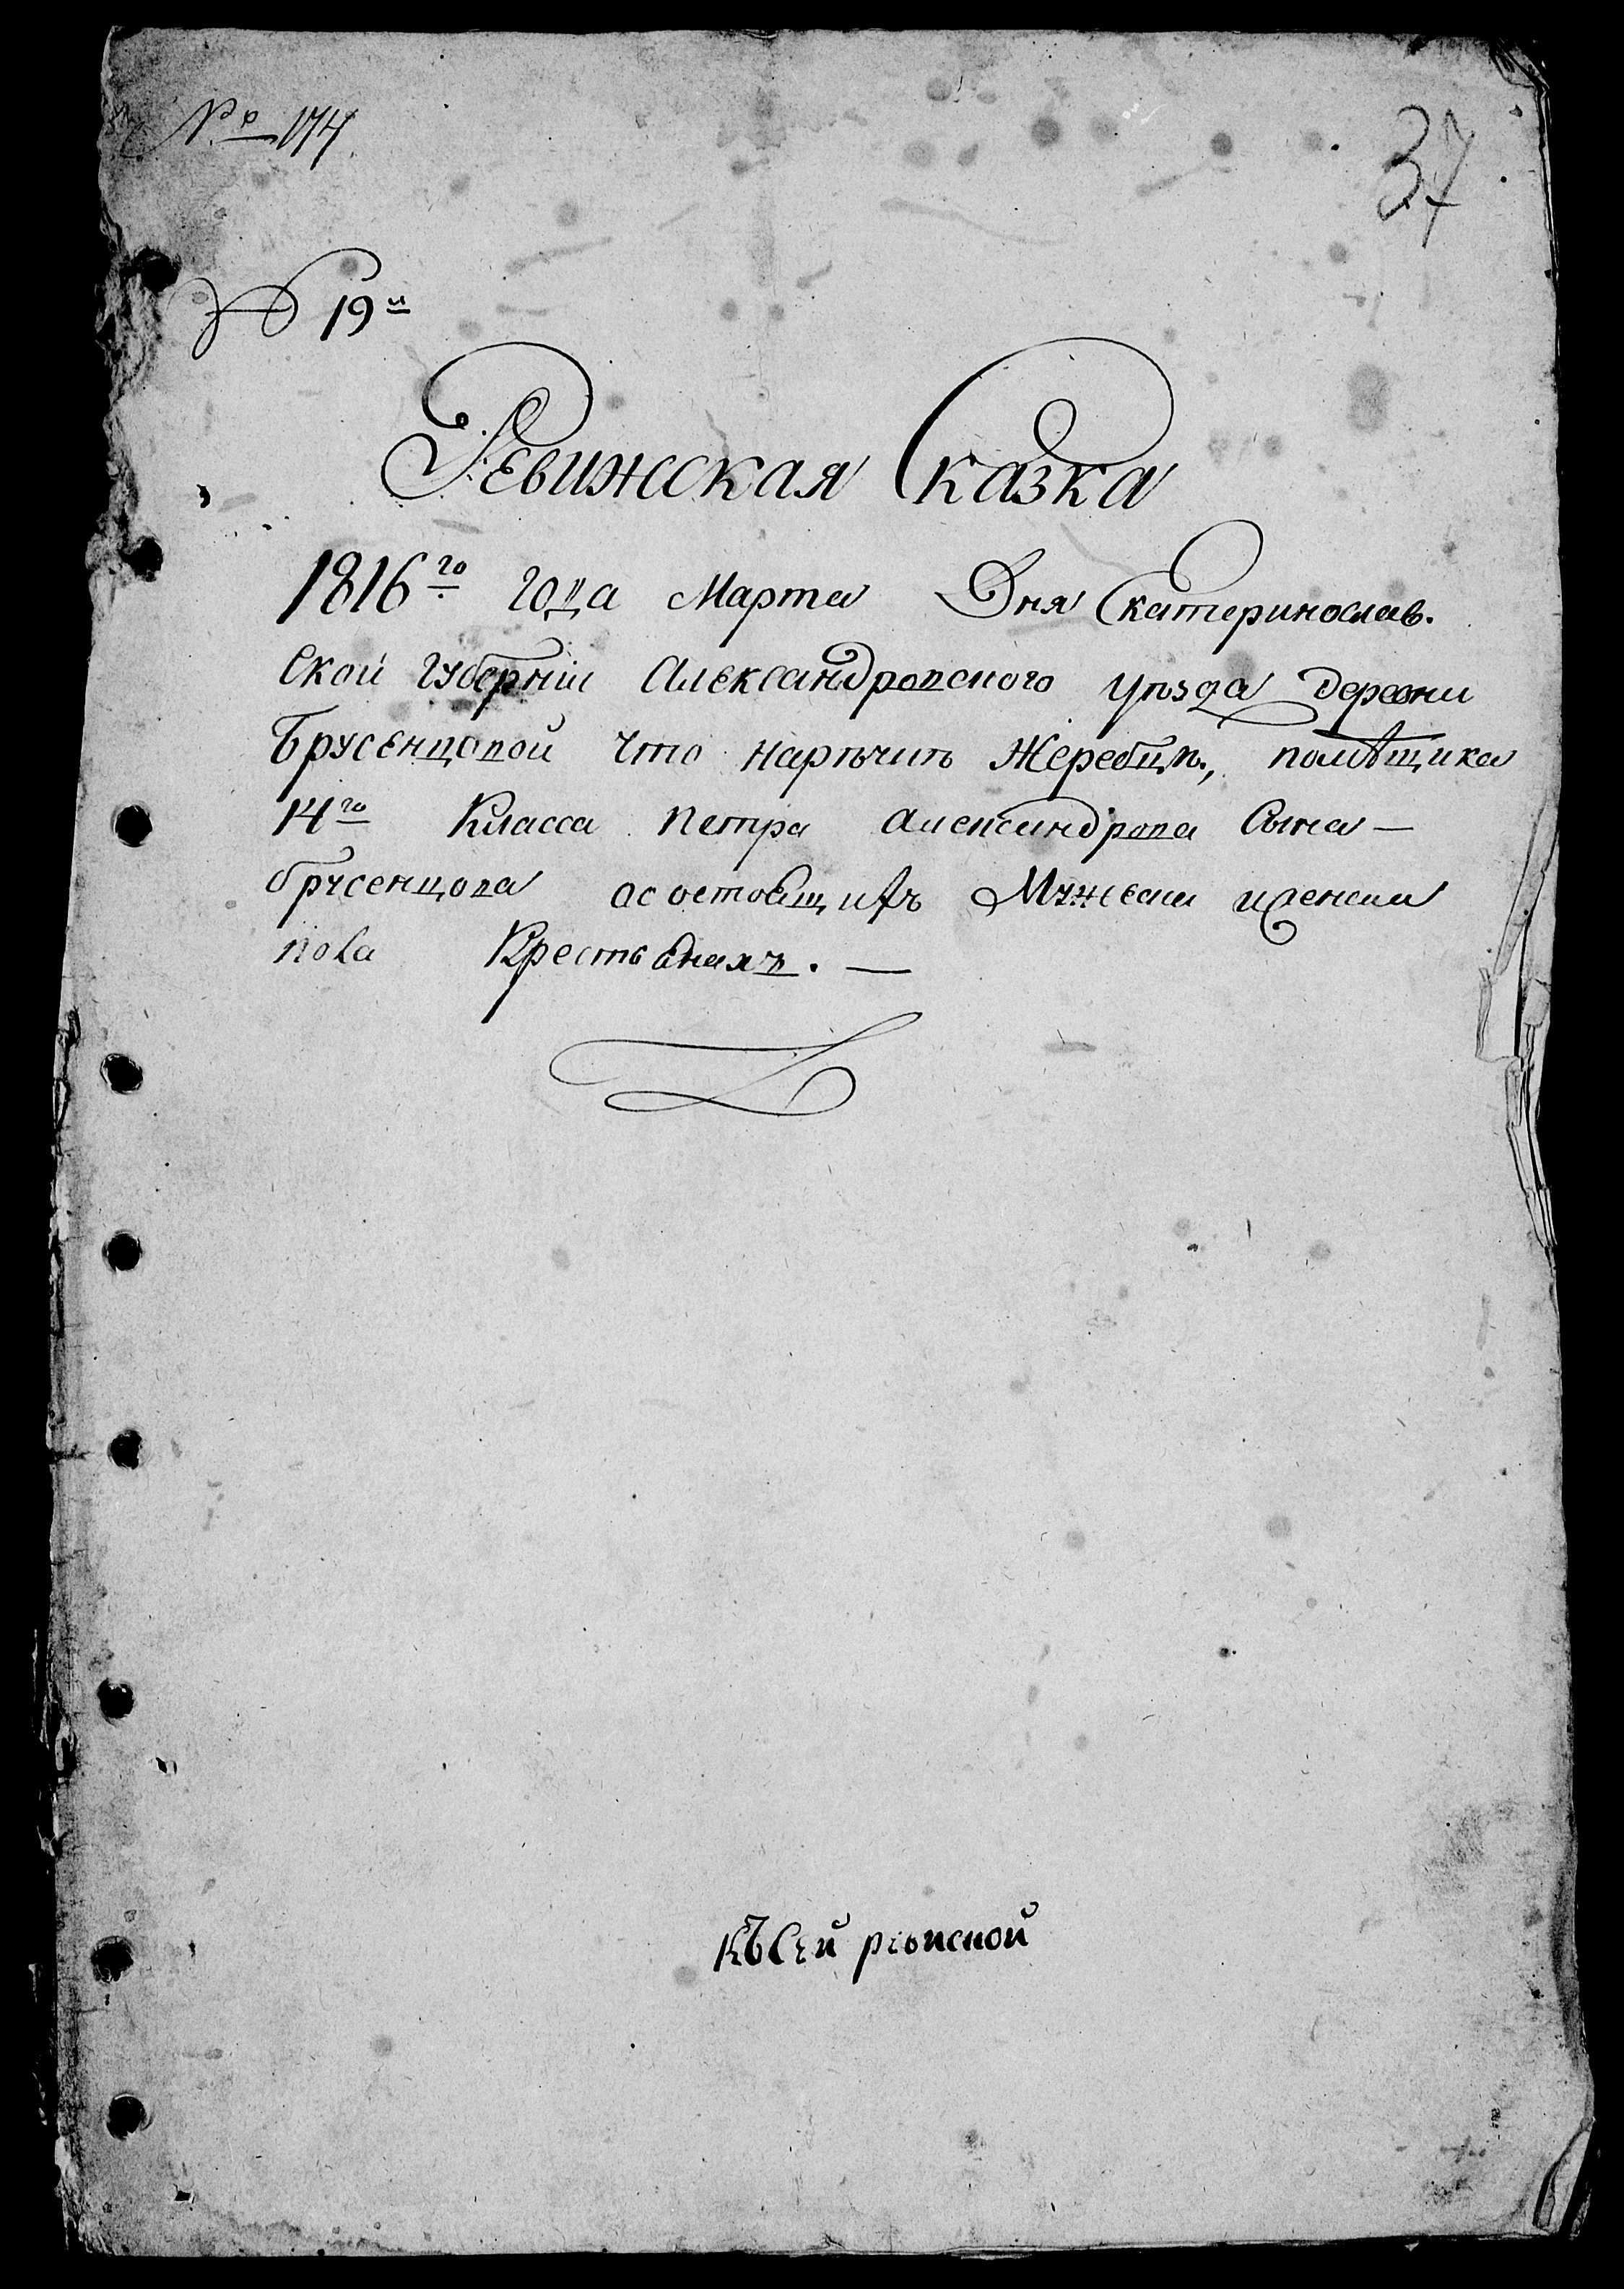 № 174
37
№ 19й
Ревижская Сказка
1816го года Марта Дня Екатеринослав.
ской губернии Александровского уѣзда деревни
Брусенцовой что наречить Жеребцѣ, помѣщика
14го Класса Петра александрова Сына —
брусенцова осостоящихъ Мужеска иженска
пола Крестьянахъ. —
Къ Сей ревиской